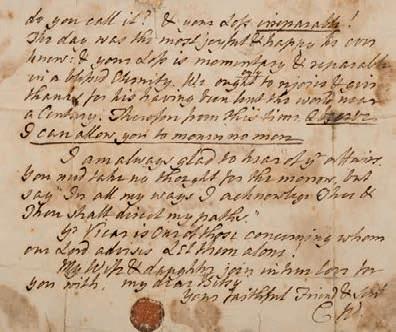 do you call it? & your Loss irreparable!
The day was the most joyful & happy he ever
knew: & your Loss is momentary & reparable
in a blessed Eternity. We ought only to rejoice & give
thanks for his having been lent the world near
a Century. Therefore from this time
I can allow you to mourn no more
I am always glad to hear of yr affairs.
You need take no thought for the morrow, but
say "In all my ways I acknowledge Thee &
Thou shalt direct my paths."
Yr Vicar is One of those concerning whom
our Lord advises Let them alone!
My Wife & daughter join in true love for
you with, my dear Betsy
Your faithful Friend & Servt
C W